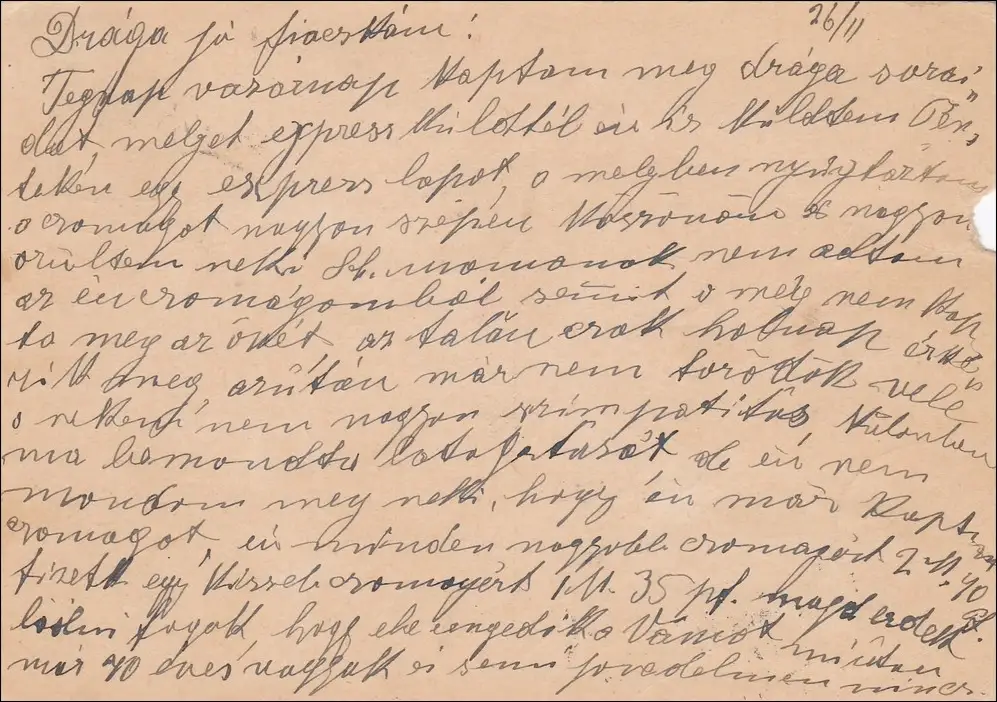 26/11
Drága jó fiacskám!
Tegnap vasárnap kaptam meg drága sorai
dat, melyet express küldtél én is küldtem Pén,
teken egy express lapot, a melyben nyugtáztam
a csomagot nagyon szépen köszönöm s nagyon
örültem neki nem adtam
az én csomagomból semit ő még nem kap
ta meg az övét az talán csak holnap érke,
zik meg, azután már nem törődök vele
ő nekem nem nagyon szimpatikus különben
ma bemondta látogatását de én nem
mondom meg neki, hogy én már kaptam
csomagot én minden nagyobb csomagért 2 M. 40 pf.
fizetek egy kisseb csomagért 1 M. 35 pf. majd érdek
lődni fogok, hogy elengedik a Vámot miután
már 70 éves vagyok és semi jövedelmem nincs.